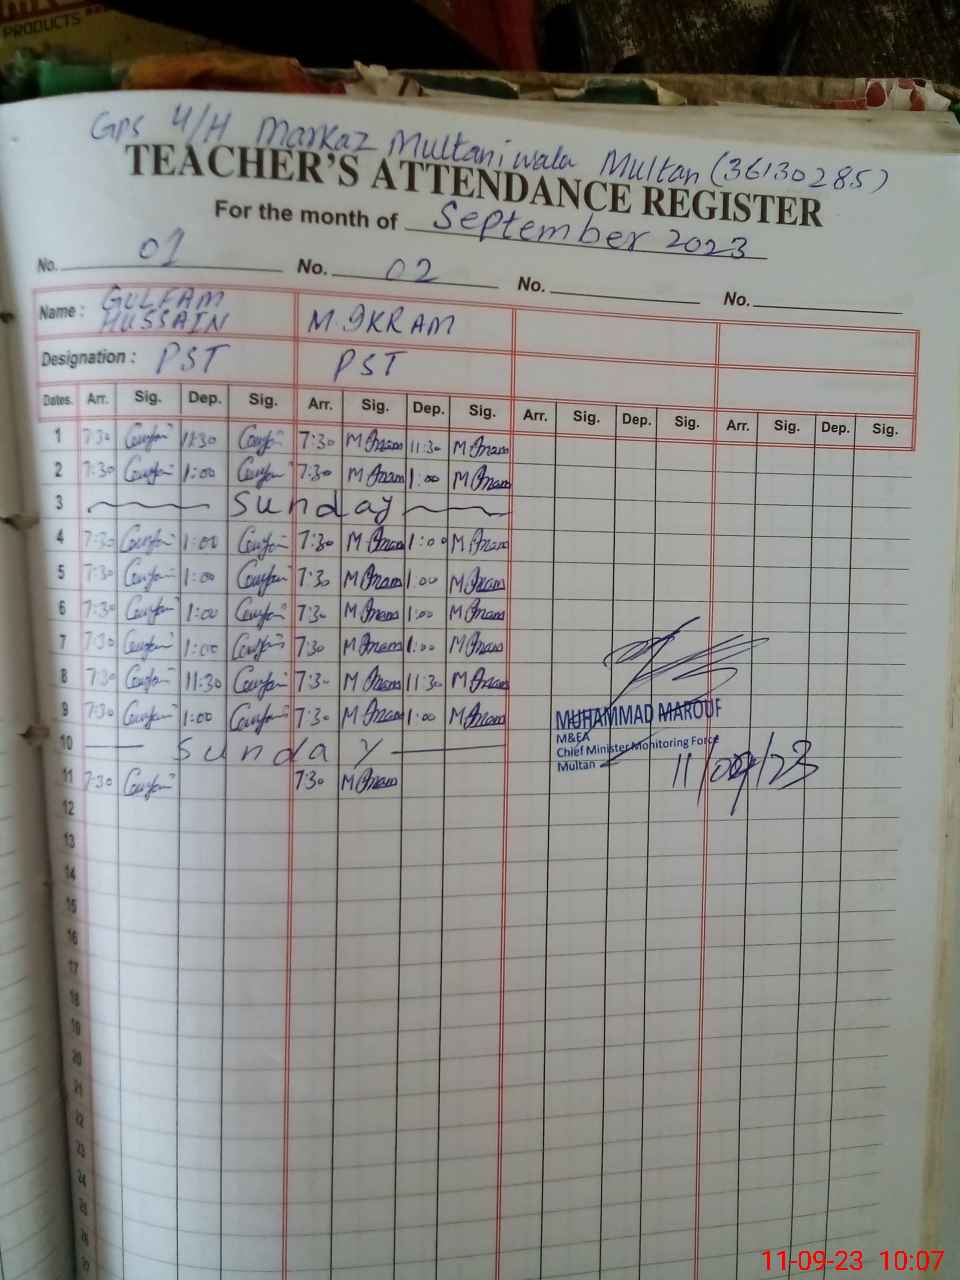 PRODUCTS
GPS 4/H Markaz Multaniwala Multan (36130285)
TEACHER'S ATTENDANCE REGISTER
For the month of September 2023
No. 01 No. 02 No. No.
Name : GULFAM HUSSAIN M. IKRAM
Designation : PST PST
Dates. Arr. Sig. Dep. Sig. Arr. Sig. Dep. Sig. Arr. Sig. Dep. Sig. Arr. Sig. Dep. Sig.
1 7:30 11:30 7:30 11:30
2 7:30 1:00 7:30 1:00
3 Sunday
4 7:30 1:00 7:30 1:00
5 7:30 1:00 7:30 1:00
6 7:30 1:00 7:30 1:00
7 7:30 1:00 7:30 1:00
8 7:30 11:30 7:30 11:30
9 7:30 1:00 7:30 1:00
10 Sunday
11 7:30 7:30
MUHAMMAD MAROUF
M&EA
Chief Minister Monitoring Force
Multan
11/09/23
12
13
14
15
16
17
18
19
20
21
22
23
24
25
26
27
11-09-23 10:07